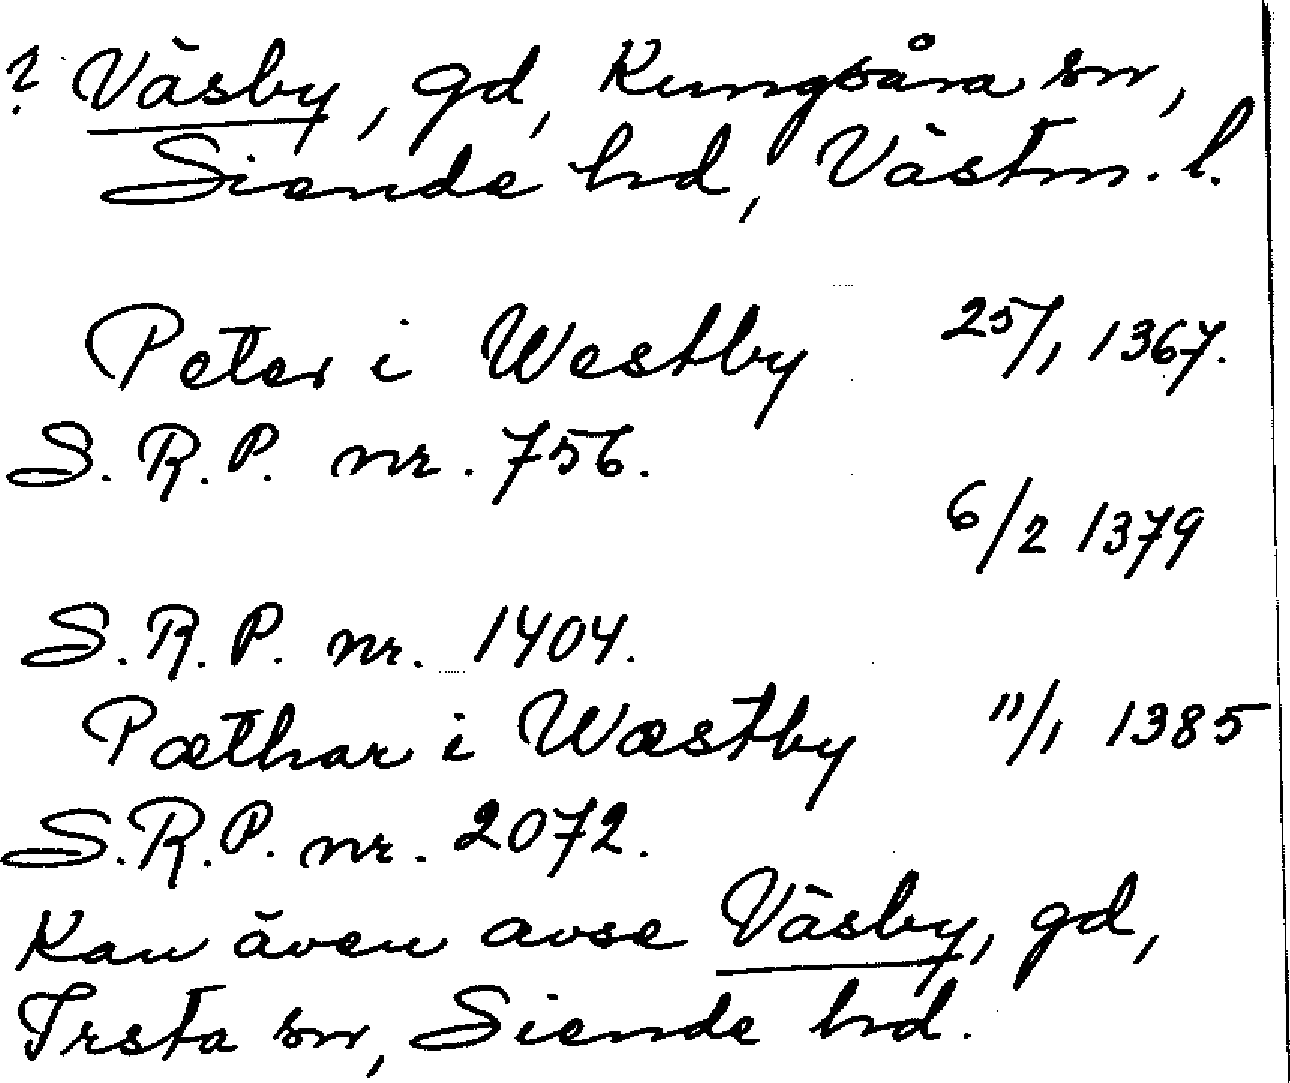 ? Väsby, gd, Kungsåra sn,
Siende hd, Västm. l.
Peter i Westby 25/1 1367.
S. R. P. nr. 756.
6/2 1379
S. R. P. nr. 1404.
Pæthar i Wæstby 11/1 1385
S. R. P. nr. 2072.
Kan även avse Väsby, gd,
Irsta sn, Siende hd.